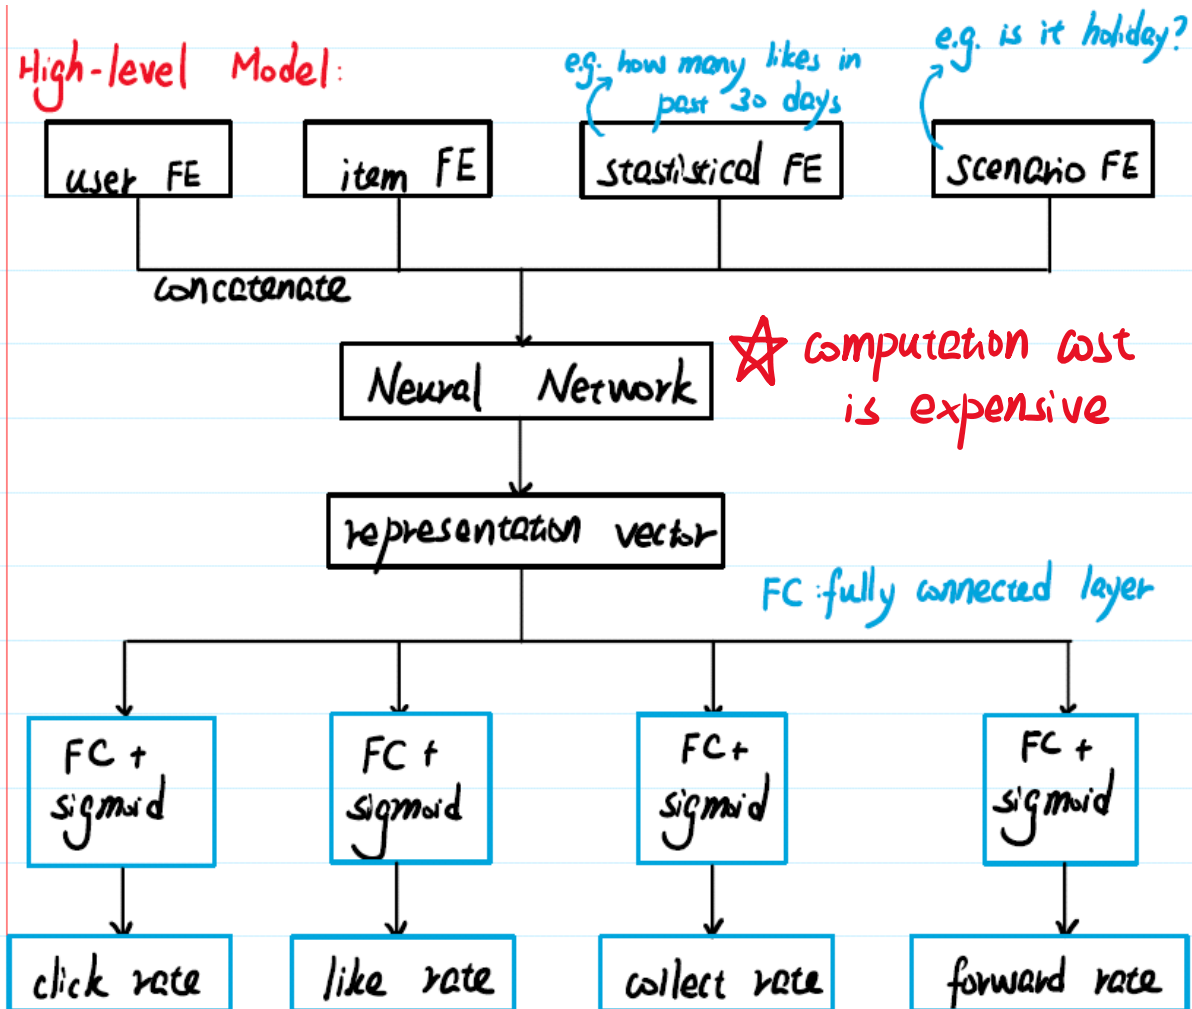 High-level Model:
e.g. how many likes in
past 30 days
e.g. is it holiday?
user FE
item FE
stastistical FE
scenario FE
concatenate
Neural Network
☆ computation cost
is expensive
representation vector
FC: fully connected layer
FC +
sigmoid
FC +
sigmoid
FC +
sigmoid
FC +
sigmoid
click rate
like rate
collect rate
forward rate